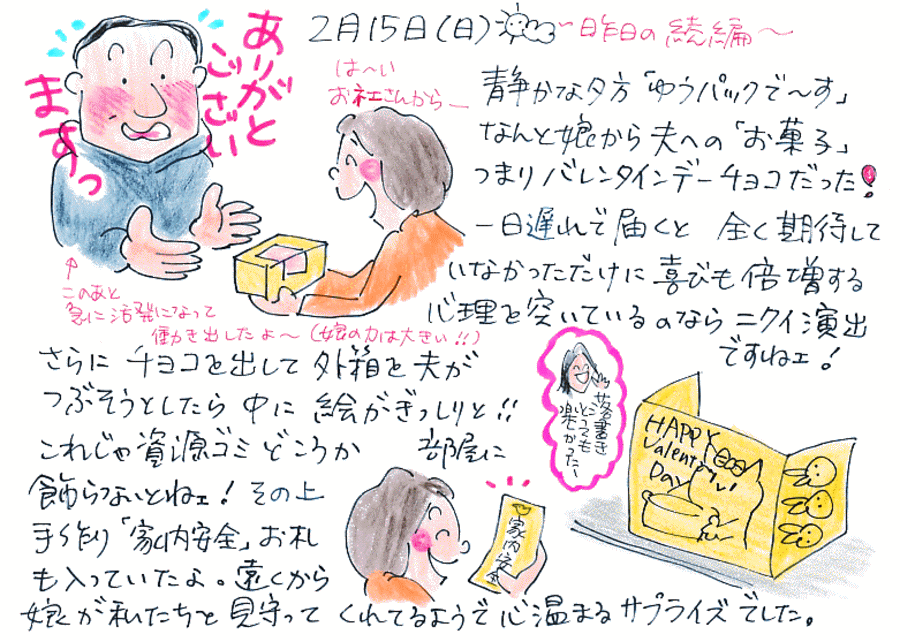 2月15日(日)
〜昨日の続編〜
ありがと
ござい
ますっ
は〜い
お社エさんから—
静かな夕方「ゆうパックで〜す」
なんと娘から夫への「お菓子」
つまりバレンタインデーチョコだった!
一日遅れで届くと 全く期待して
いなかっただけに喜びも倍増する
心理を突いているのならニクイ演出
ですねェ!
↑
このあと
急に活発になって
働き出したよ〜(娘の力は大きい!!)
さらに チョコを出して 外箱を夫が
つぶそうとしたら 中に 絵がぎっしりと!!
これじゃ資源ゴミどころか 部屋に
飾らないとねェ! その上
手作り「家内安全」お札
も入っていたよ。遠くから
娘が私たちを見守って くれてるようで心温まるサプライズでした。
落書き
とっても
楽しかった—
HAPPY
Valentine
Day
家内安全